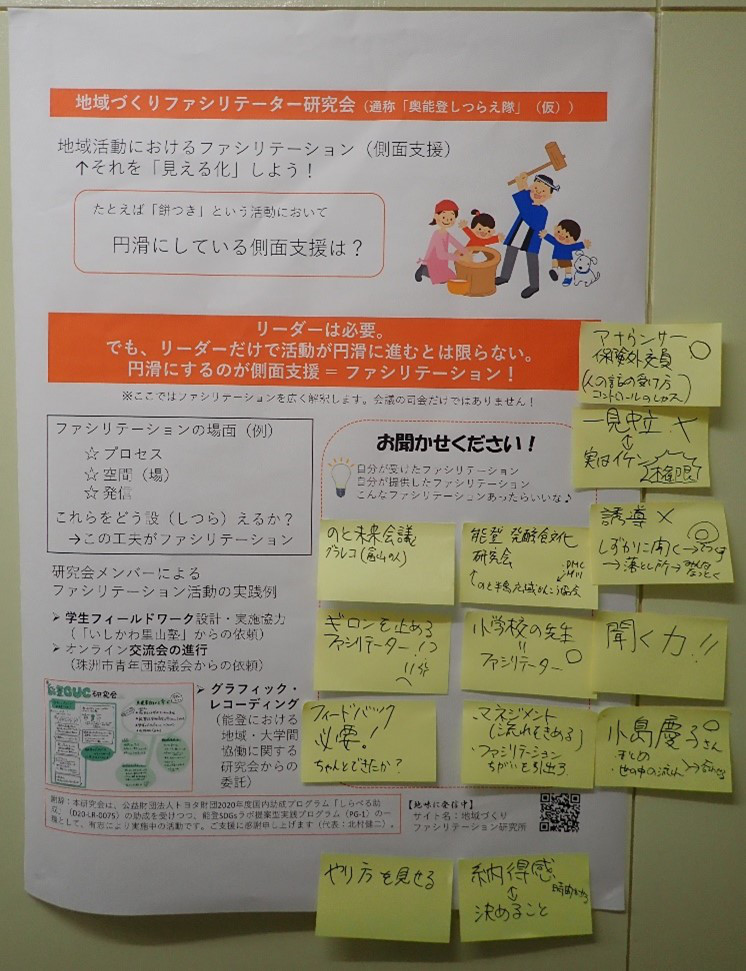 地域づくりファシリテーター研究会(通称「奥能登しつらえ隊」(仮))
地域活動におけるファシリテーション(側面支援)
↑それを「見える化」しよう!
たとえば「餅つき」という活動において
円滑にしている側面支援は?
リーダーは必要。
でも、リーダーだけで活動が円滑に進むとは限らない。
円滑にするのが側面支援 = ファシリテーション!
※ここではファシリテーションを広く解釈します。会議の司会だけではありません!
ファシリテーションの場面(例)
☆ プロセス
☆ 空間(場)
☆ 発信
これらをどう設(しつら)えるか?
→この工夫がファシリテーション
研究会メンバーによる
ファシリテーション活動の実践例
➢ 学生フィールドワーク設計・実施協力
(「いしかわ里山塾」からの依頼)
➢ オンライン交流会の進行
(珠洲市青年団協議会からの依頼)
➢ グラフィック・
レコーディング
(能登における
地域・大学間
協働に関する
研究会からの
委託)
お聞かせください!
自分が受けたファシリテーション
自分が提供したファシリテーション
こんなファシリテーションあったらいいな♪
アナウンサー
保険外交員 ○
一見中立 ×
↕
実はイケン
誘導 ×
しずかに聞く→
→落とし所→みんな
なっとく
のと未来会議
グラレコ(富山の人)
能登 発酵食文化
研究会
ギロンを止める
ファシリテーター!?
小学校の先生
〃
ファシリテーター ○
聞く力!!
フィードバック
必要!
ちゃんとできたか?
・マネジメント
(流れをきめる)
・ファシリテーション
ちがいを引出す
小島慶子さん ○
・まとめ
やり方を見せる
納得感
↕
決めること
謝辞:本研究会は、公益財団法人トヨタ財団2020年度国内助成プログラム「しらべる助
成」(D20-LR-0075)の助成を受けつつ、能登SDGsラボ提案型実践プログラム(PG-1)の一
環として、有志により実施中の活動です。ご支援に感謝申し上げます(代表:北村健二)。
【地味に発信中】
サイト名:地域づくり
ファシリテーション研究所